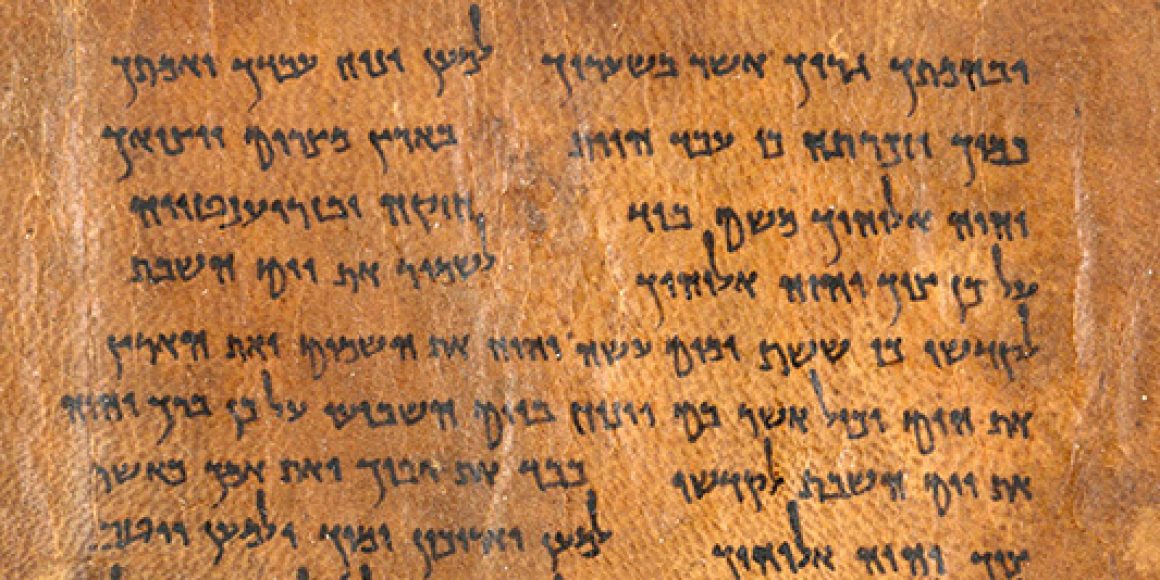 ובהמתך גריך אשר בשעריך למען ינוח עבדך ואמתך
כמוך וזכרתה כי עבד היית בארץ מצרים ויציאך
יהוה אלוהיך משם ביד חזקה ובזרוע נטויה
על כן צוך יהוה אלוהיך לשמור את יום השבת
לקדשו כי ששת ימים עשה יהוה את השמים ואת הארץ
את הים וכול אשר בם וינוח ביום השביעי על כן ברך יהוה
את יום השבת לקדשו כבד את אביך ואת אמך כאשר
צוך יהוה אלוהיך למען יאריכון ימיך ולמען ייטב